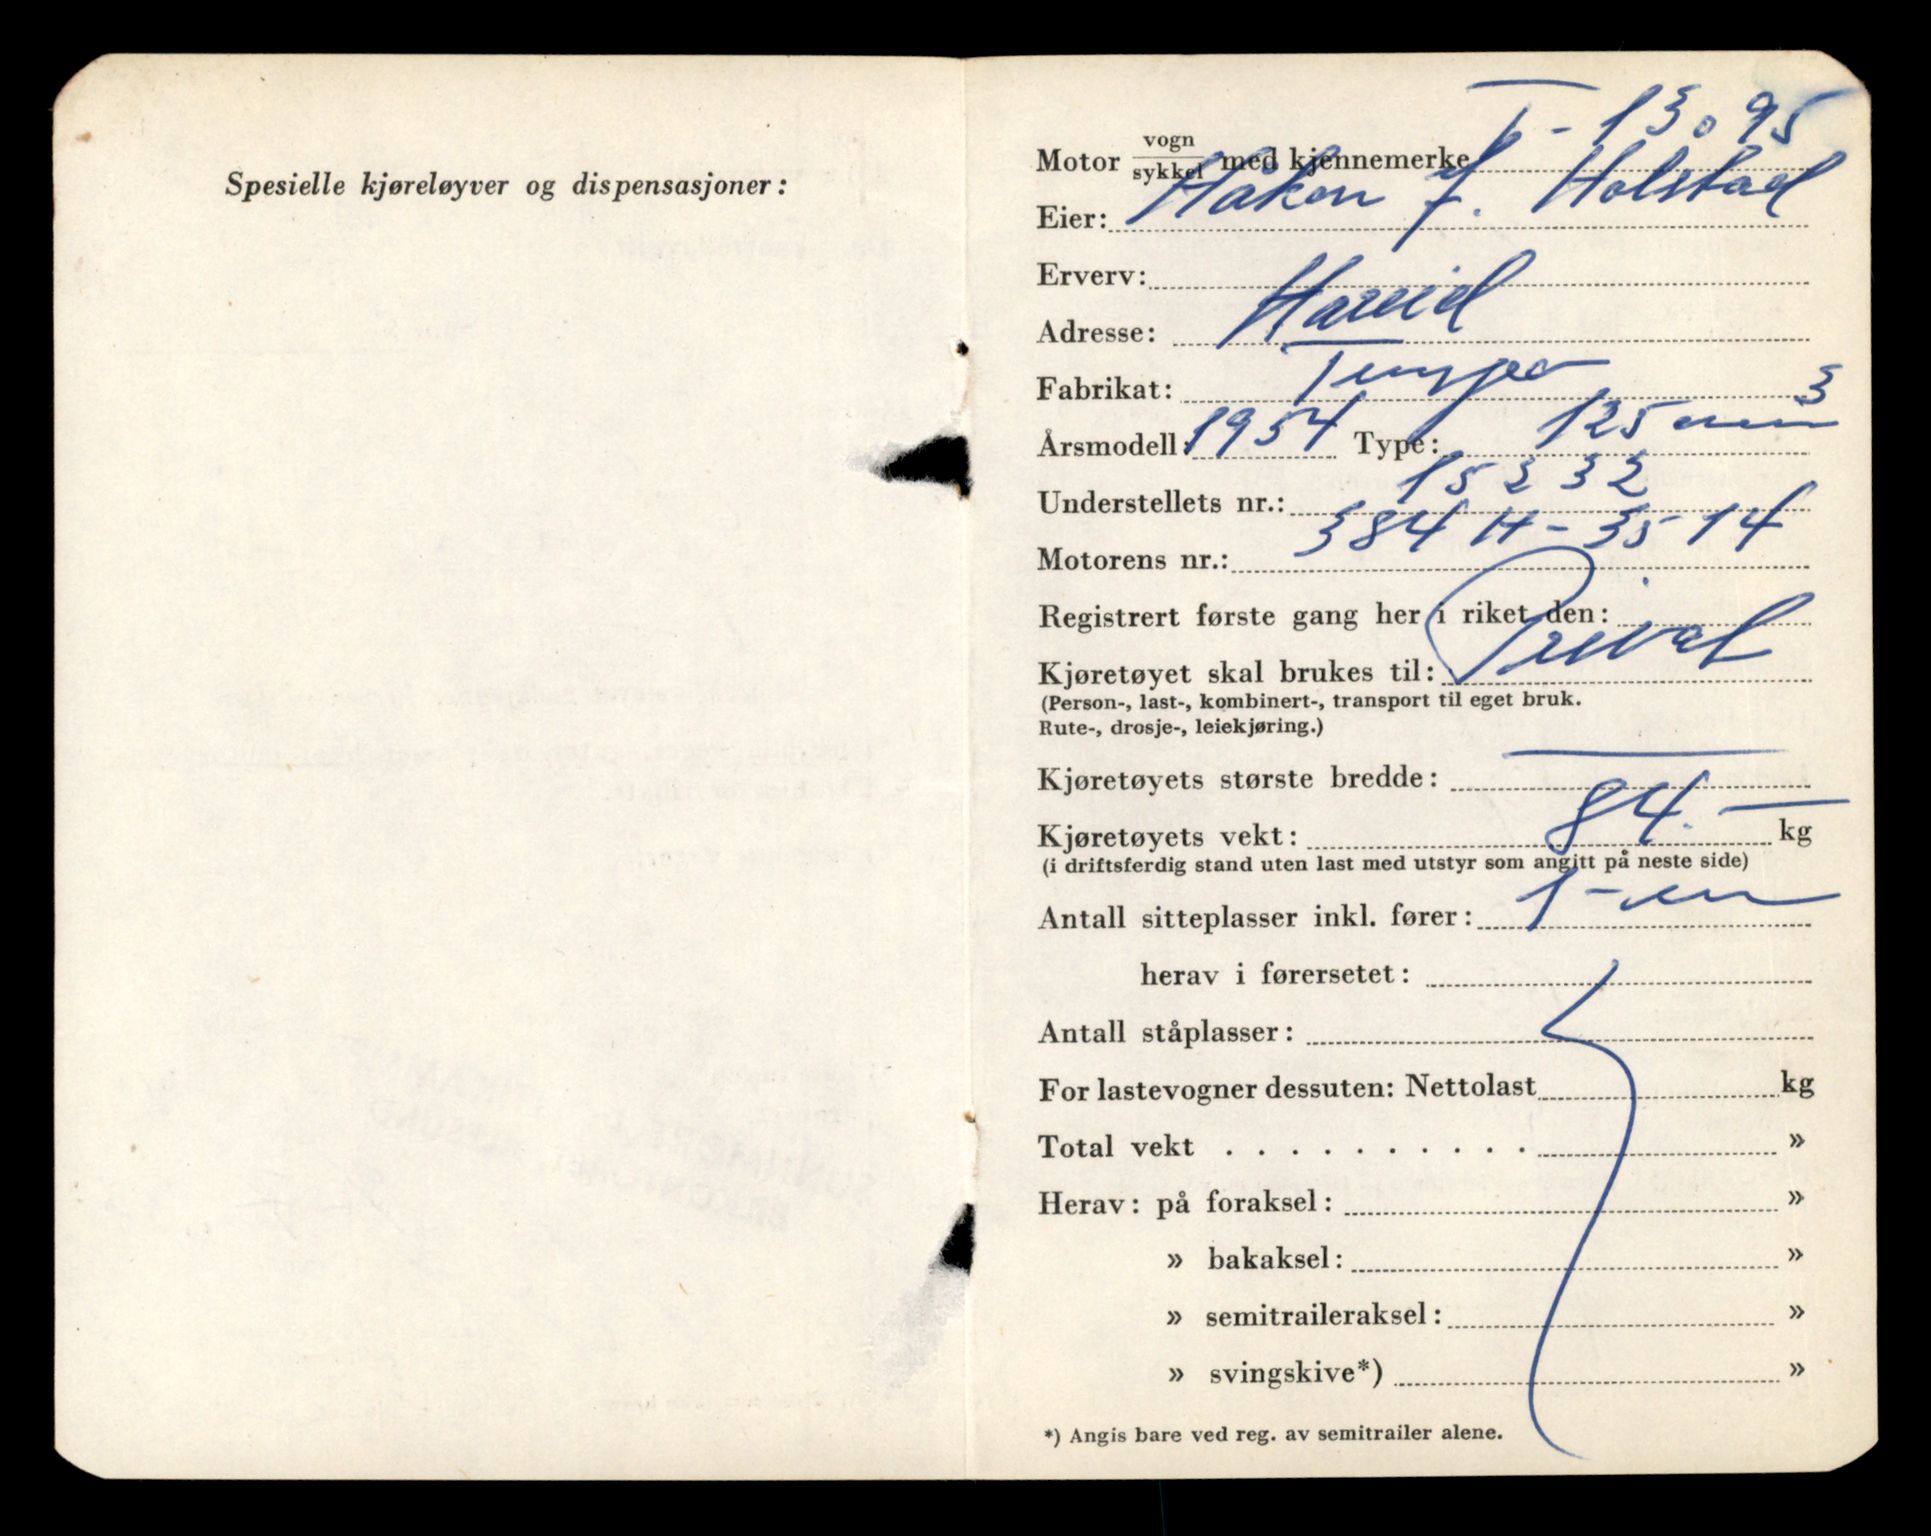 Spesielle kjøreløyver og dispensasjoner:
Motor vogn/sykkel med kjennemerke T-13095
Eier: Håkon J. Holstad
Erverv:
Adresse: Hareid
Fabrikat: Tempo
Årsmodell: 1954 Type: 125 cm3
Understellets nr.: 15232
Motorens nr.: 384 H-3514
Registrert første gang her i riket den:
Kjøretøyet skal brukes til: Privat
(Person-, last-, kombinert-, transport til eget bruk.
Rute-, drosje-, leiekjøring.)
Kjøretøyets største bredde: —
Kjøretøyets vekt: 84.— kg
(i driftsferdig stand uten last med utstyr som angitt på neste side)
Antall sitteplasser inkl. fører: 1-en
herav i førersetet:
Antall ståplasser:
For lastevogner dessuten: Nettolast kg
Total vekt . . . . . . . . . . »
Herav: på foraksel: »
» bakaksel: »
» semitraileraksel: »
» svingskive*) »
*) Angis bare ved reg. av semitrailer alene.